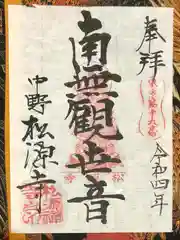 奉拝
令和四年
南無觀世音
中野 松源寺